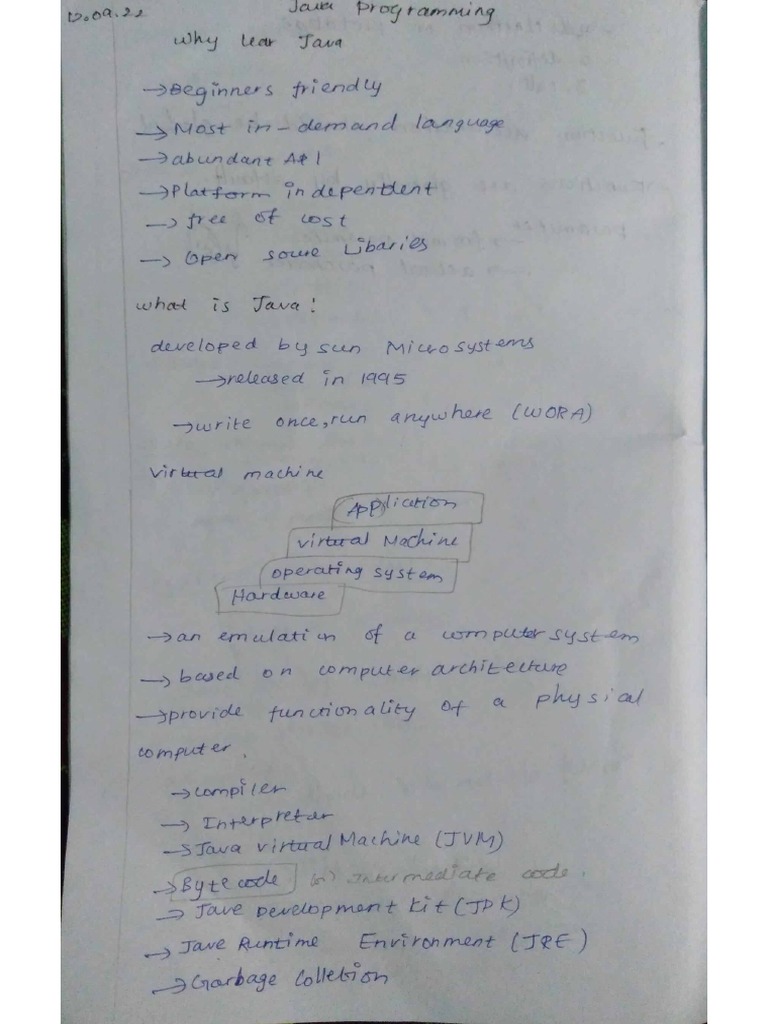 12.09.22
Java Programming
Why lear Java
→Beginners friendly
→Most in-demand language
→abundant API
→Platform independent
→free of cost
→Open sourse Libaries
what is Java!
developed by sun Microsystems
→released in 1995
→write once, run anywhere (WORA)
virtual machine
Application
virtual Machine
operating system
Hardware
→an emulation of a computer system
→based on computer architecture
→provide functionality of a physical
computer.
→compiler
→Interpretar
→Java virtual Machine (JVM)
→Byte code (or) Intermediate code.
→Jave Development kit (JDK)
→Jave Runtime Environment (JRE)
→Garbage Colletion